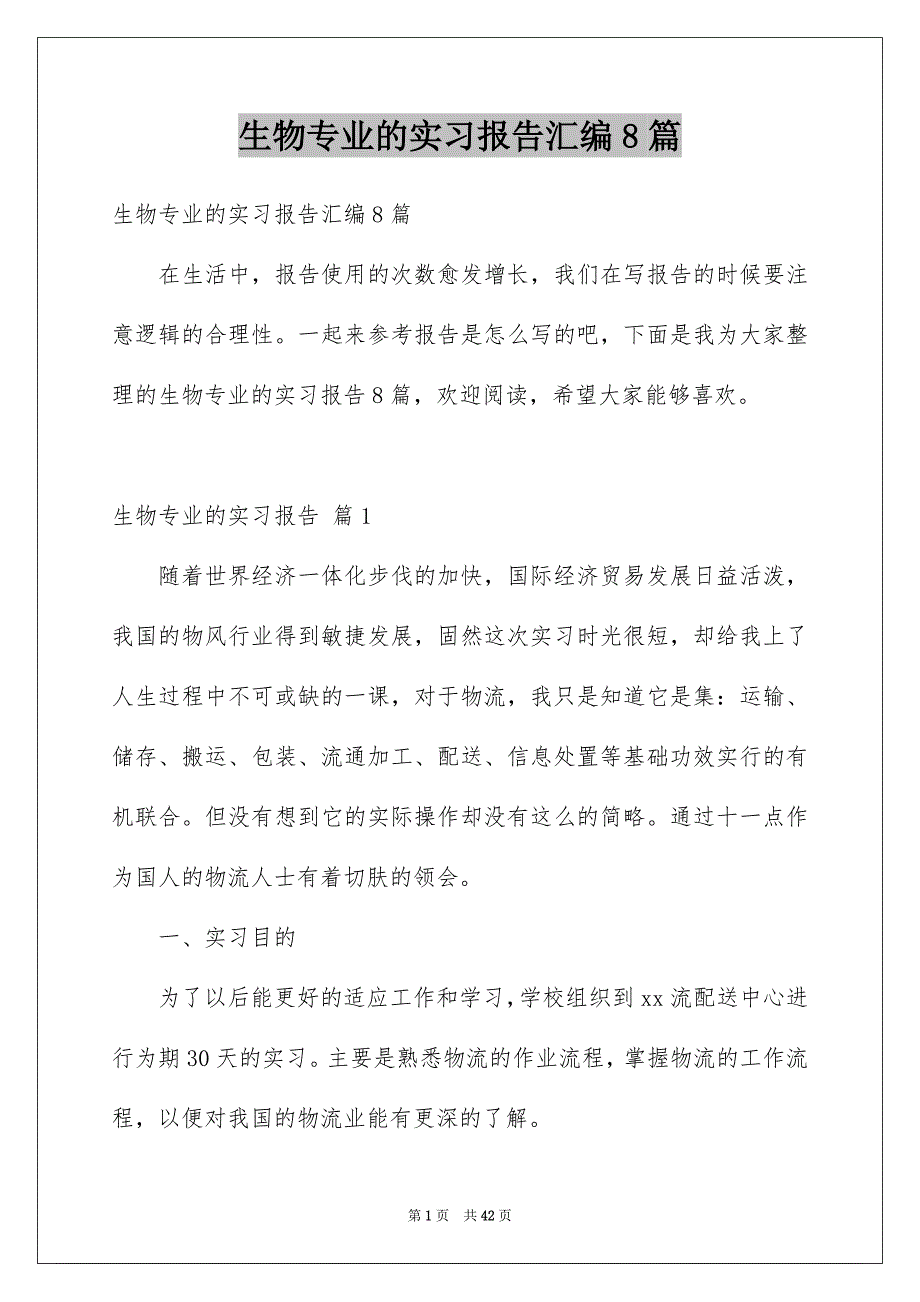 生物专业的实习报告汇编8篇
生物专业的实习报告汇编8篇
在生活中，报告使用的次数愈发增长，我们在写报告的时候要注
意逻辑的合理性。一起来参考报告是怎么写的吧，下面是我为大家整
理的生物专业的实习报告8篇，欢迎阅读，希望大家能够喜欢。
生物专业的实习报告 篇1
随着世界经济一体化步伐的加快，国际经济贸易发展日益活泼，
我国的物风行业得到敏捷发展，固然这次实习时光很短，却给我上了
人生过程中不可或缺的一课，对于物流，我只是知道它是集：运输、
储存、搬运、包装、流通加工、配送、信息处置等基础功效实行的有
机联合。但没有想到它的实际操作却没有这么的简略。通过十一点作
为国人的物流人士有着切肤的领会。
一、实习目的
为了以后能更好的适应工作和学习，学校组织到xx流配送中心进
行为期30天的实习。主要是熟悉物流的作业流程，掌握物流的工作流
程，以便对我国的物流业能有更深的了解。
第1页 共42页